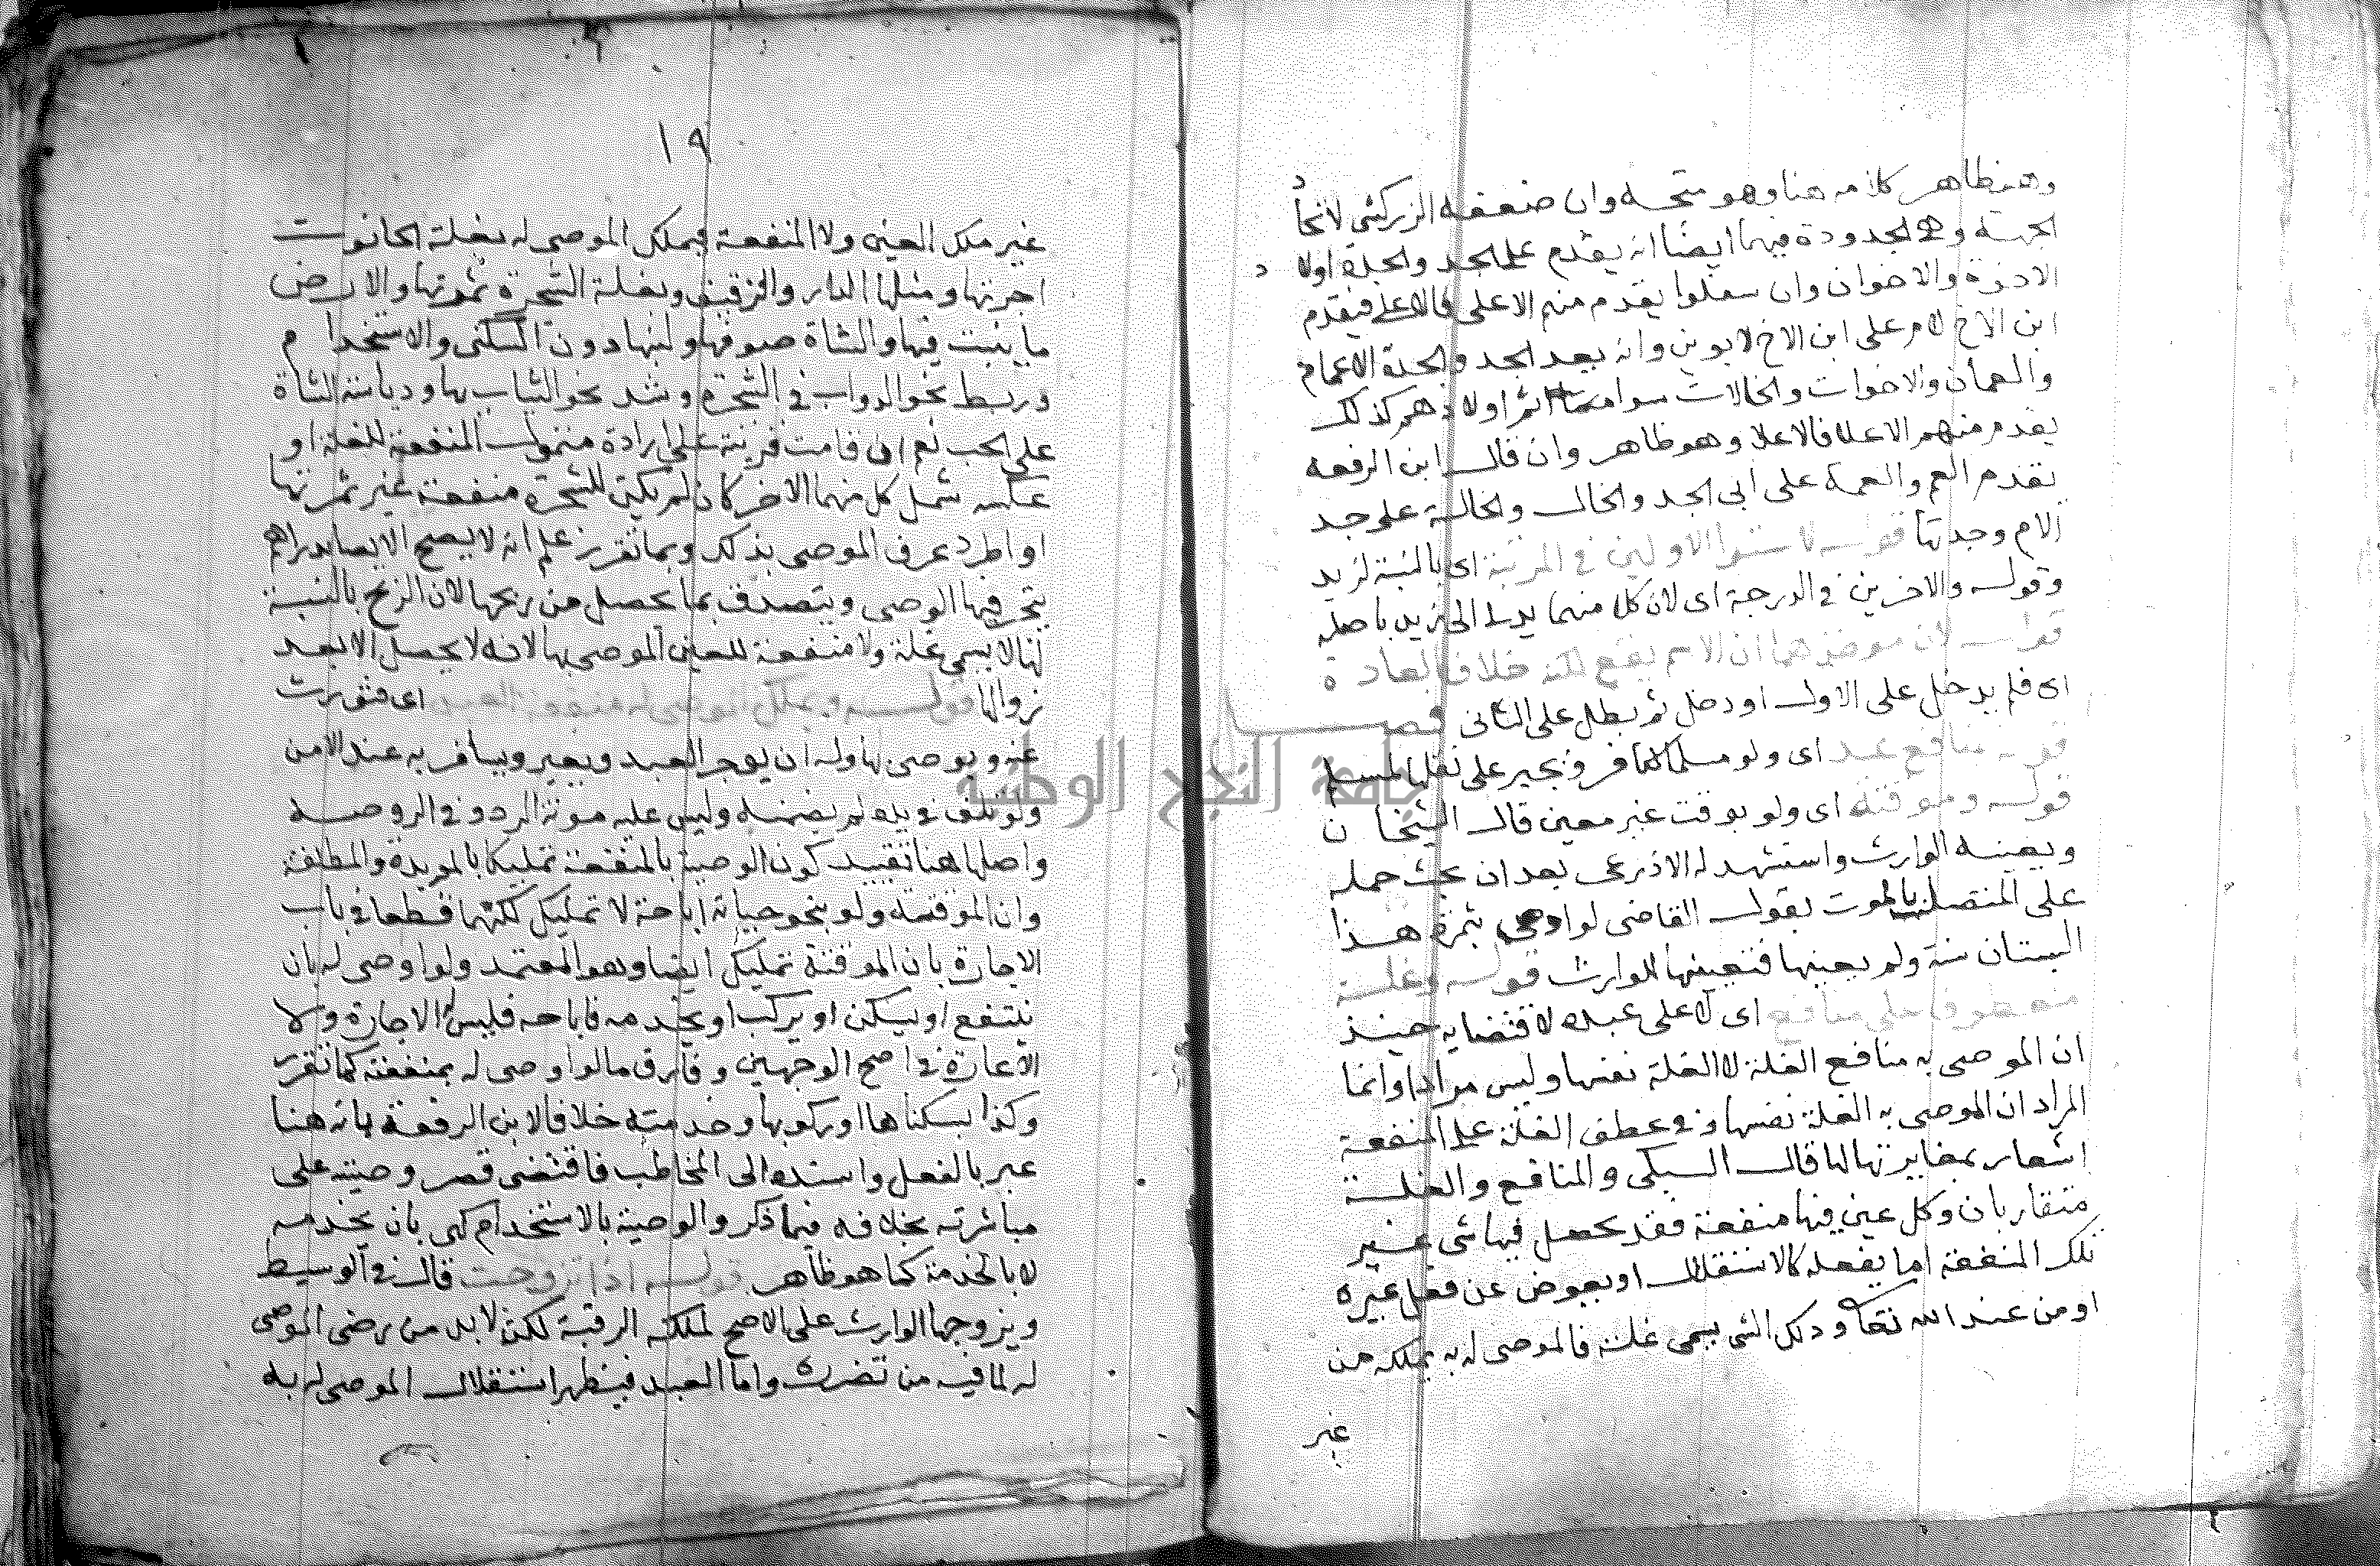 وهو ظاهر كلامه هنا وهو متجه وان ضعفه الزركشي لاتحاد
الجهة والجدودة فيهما ايضا انه يقدم على الجد والجدة اولاد
الاخوة والاخوان وان سفلوا يقدم منهم الاعلى فالاعلى فيقدم
ابن الاخ لام على ابن الاخ لابوين وانه بعد الجد والجدة الاعمام
والعمات والاخوات والخالات سوا ثم اولادهم كذلك
يقدم منهم الاعلا فالاعلا وهو ظاهر وان قال ابن الرفعه
تقدم العم والعمة على ابي الجد والخال والخالة على جد
الام وجدتها قوله لاستوا الاولين في المرتبة اي بالنسبة لزيد
وقوله والاخرين في الدرجة اي لان كل منهما يدلى الى زيد باصله
قوله لان موضوعها ان الاسم يقع لكنه خلاف العادة
اي فلم يدخل على الاول او دخل ثم بطل على الثاني فصل
قوله منافع عبد اي ولو مسلما لكافر ويجبر على نقل المسلم
قوله وموقتة اي ولو بوقت غير معين قال الشيخان
ويعينه الوارث واستشهد له الاذرعي بعد ان بحث حمله
على المتصل بالموت بقول القاضي لو اوصى بثمرة هذا
البستان سنة ولم يعينها فتعيينها للوارث قوله وغلة
معطوف على منافع اي لا على عبد لاقتضايه حينئذ
ان الموصى به منافع الغلة لا الغلة نفسها وليس مرادا وانما
المراد ان الموصى به الغلة نفسها وفي عطف الغلة على المنفعة
اشعار بمغايرتها لها قال السبكي والمنافع والغلة
متقاربان وكل عين فيها منفعة فقد يحصل فيها شي غير
تلك المنفعة اما بفعله كالاستقلال او بعوض عن فعل غيره
او من عند الله تعا وذلك الشي يسمى غلة فالموصى له به يملكه من
غير
١٩
غير ملك العين ولا المنفعة فيملك الموصى له بغلة الحانوت
اجرتها ومثلها الدار والرقيق وبغلة الشجرة ثمرتها والارض
ما ينبت فيها والشاة صوفها ولبنها دون السكنى والاستخدام
وربط نحو الدواب في الشجرة وشد نحو الثياب بها ودياسة الشاة
على الحب نعم ان قامت قرينة على ارادة متناول المنفعة للغلة او
عكسه شمل كل منهما الاخر كان لم يكن للشجرة منفعة غير ثمرتها
او اطرد عرف الموصى بذلك وبما تقرر علم انه لا يصح الايصا بدراهم
يتجر فيها الوصي ويتصدق بما يحصل من ربحها لان الربح بالنسبة
لها لا يسمى غلة ولا منفعة للعين الموصى بها لانه لا يحصل الا بعد
زوالها قوله ويملك الموصى له منفعة العبد اي فتورث
عنه ويوصى بها وله ان يوجر العبد ويعير ويسافر به عند الامن
ولو تلف في يده لم يضمنه وليس عليه مونة الرد وفي الروضة
واصلها هنا تقييد كون الوصية بالمنفعة تمليكا بالموبدة والمطلقة
وان الموقتة ولو بنحو حياته اباحة لا تمليك لكنهما قطعا في باب
الاجارة بان الموقتة تمليك ايضا وهو المعتمد ولو اوصى له بان
ينتفع او يسكن او يركب او يخدمه فاباحه فليس له الاجارة ولا
الاعارة في اصح الوجهين وفارق ما لو اوصى له بمنفعته كما تقرر
وكذا بسكناها او ركوبها وخدمته خلافا لابن الرفعة بانه هنا
عبر بالفعل واسنده الى المخاطب فاقتضى قصر وصيته على
مباشرته بخلافه فيما ذكر والوصية بالاستخدام كهى بان يخدمه
لا بالخدمة كما هو ظاهر قوله اذا تزوجت قال في الوسيط
ويزوجها الوارث على الاصح لملكه الرقبة لكن لا بد من رضى الموصى
له لما فيه من تضرره واما العبد فيظهر استقلال الموصى له به
جامعة النجاح الوطنية